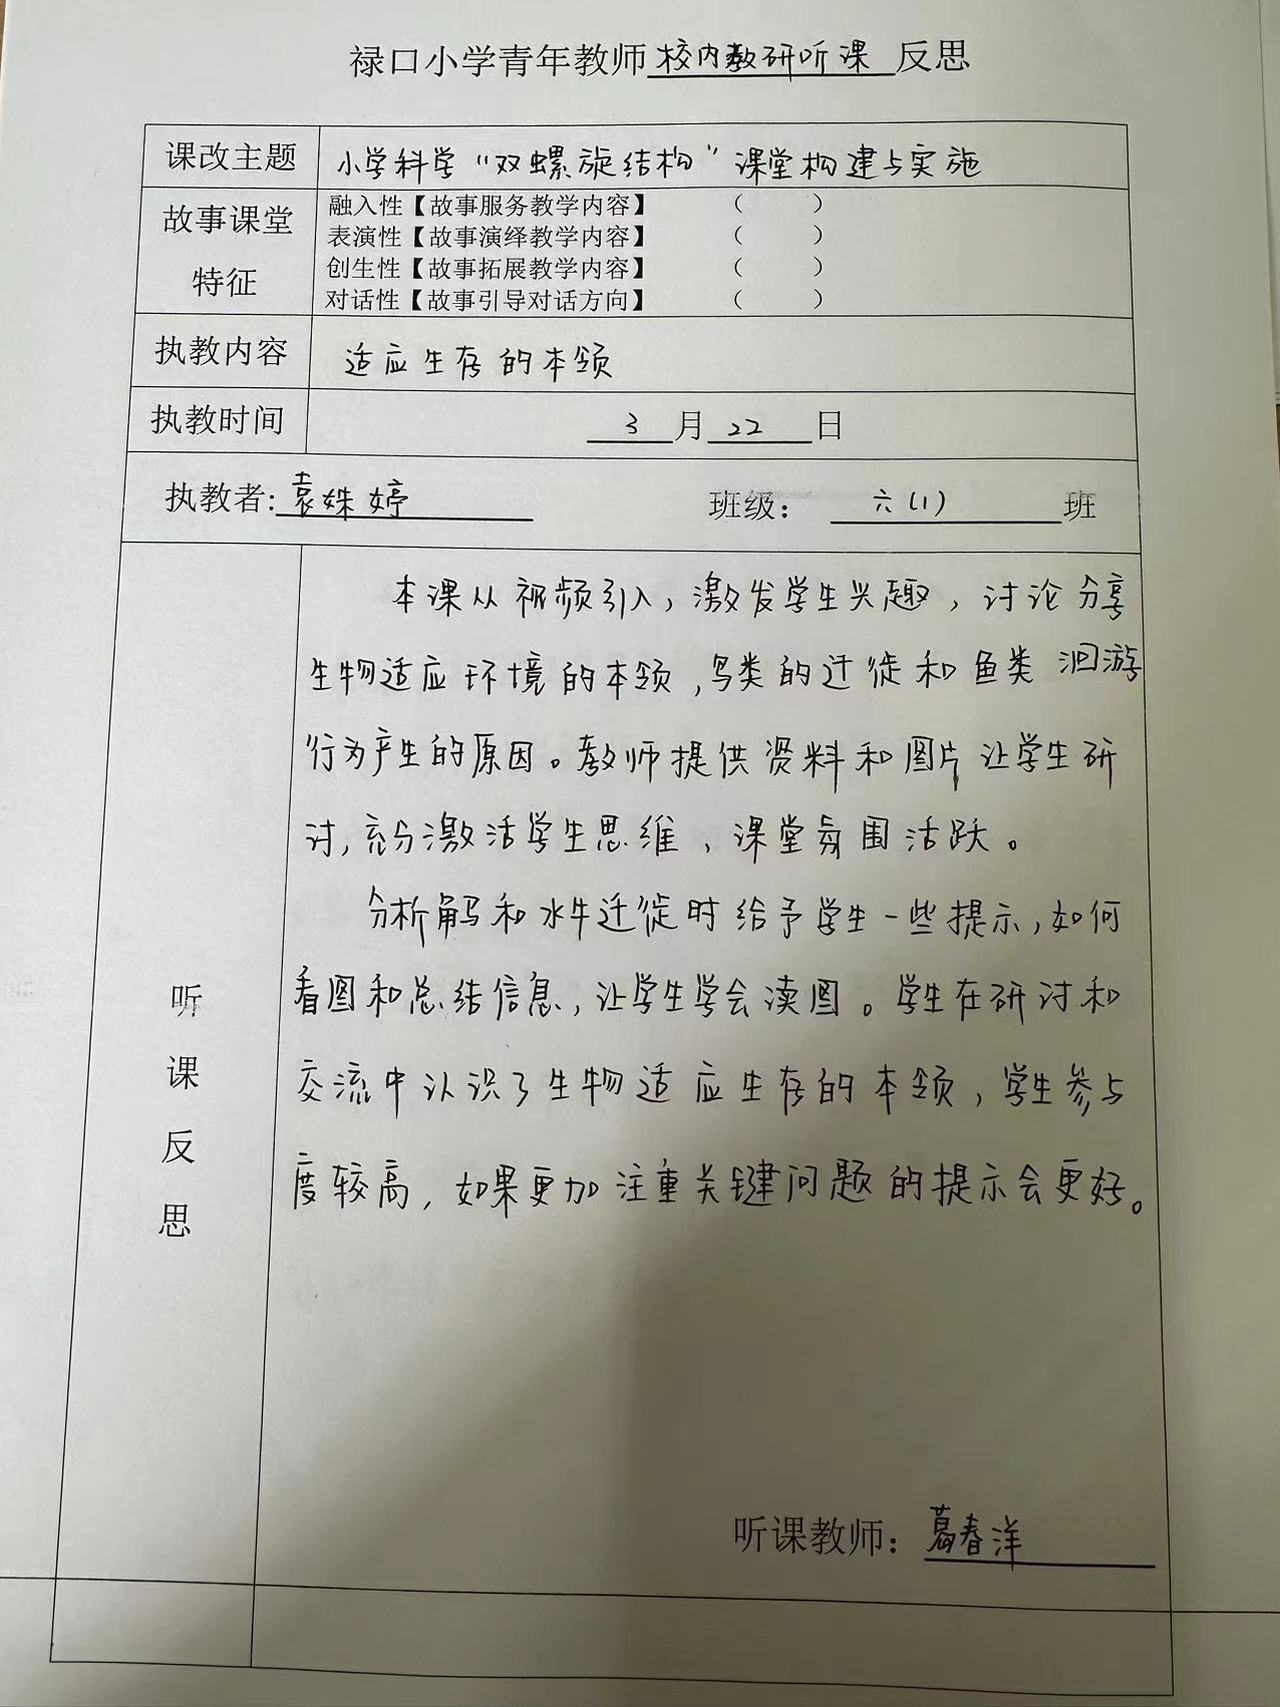 禄口小学青年教师校内教研听课反思
课改主题 小学科学“双螺旋结构”课堂构建与实施
故事课堂特征
融入性【故事服务教学内容】 （ ）
表演性【故事演绎教学内容】 （ ）
创生性【故事拓展教学内容】 （ ）
对话性【故事引导对话方向】 （ ）
执教内容 适应生存的本领
执教时间 3月22日
执教者:袁姝婷 班级：六(1)班
听课反思
本课从视频引入，激发学生兴趣，讨论分享
生物适应环境的本领,鸟类的迁徙和鱼类洄游
行为产生的原因。教师提供资料和图片让学生研
讨,充分激活学生思维、课堂氛围活跃。
分析解和水牛迁徙时给予学生一些提示,如何
看图和总结信息,让学生学会读图。学生在研讨和
交流中认识了生物适应生存的本领,学生参与
度较高,如果更加注重关键问题的提示会更好。
听课教师：葛春洋